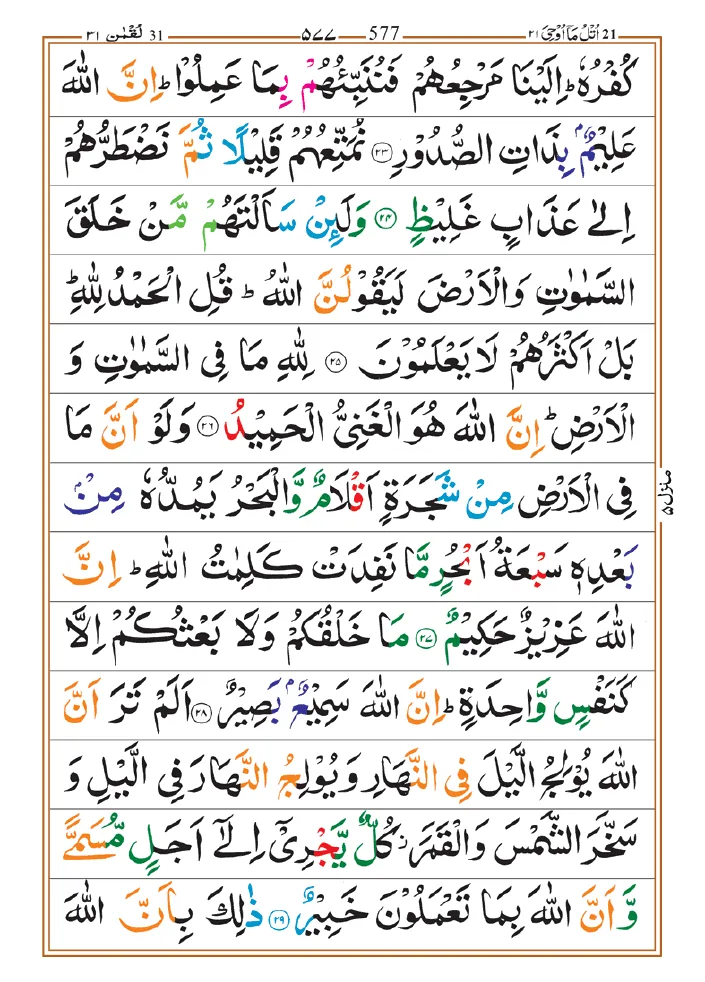 21 اُتْلُ مَاۤ اُوْحِیَ ۲۱
577 ۵۷۷
31 لُقْمٰن ۳۱
كُفْرُهٗ ؕ اِلَیْنَا مَرْجِعُهُمْ فَنُنَبِّئُهُمْ بِمَا عَمِلُوْا ؕ اِنَّ اللّٰهَ
عَلِیْمٌۢ بِذَاتِ الصُّدُوْرِ ﴿۲۳﴾ نُمَتِّعُهُمْ قَلِیْلًا ثُمَّ نَضْطَرُّهُمْ
اِلٰی عَذَابٍ غَلِیْظٍ ﴿۲۴﴾ وَلَىِٕنْ سَاَلْتَهُمْ مَّنْ خَلَقَ
السَّمٰوٰتِ وَالْاَرْضَ لَیَقُوْلُنَّ اللّٰهُ ؕ قُلِ الْحَمْدُ لِلّٰهِ ؕ
بَلْ اَكْثَرُهُمْ لَا یَعْلَمُوْنَ ﴿۲۵﴾ لِلّٰهِ مَا فِی السَّمٰوٰتِ وَ
الْاَرْضِ ؕ اِنَّ اللّٰهَ هُوَ الْغَنِیُّ الْحَمِیْدُ ﴿۲۶﴾ وَلَوْ اَنَّ مَا
فِی الْاَرْضِ مِنْ شَجَرَةٍ اَقْلَامٌ وَّالْبَحْرُ یَمُدُّهٗ مِنْۢ
بَعْدِهٖ سَبْعَةُ اَبْحُرٍ مَّا نَفِدَتْ كَلِمٰتُ اللّٰهِ ؕ اِنَّ
اللّٰهَ عَزِیْزٌ حَكِیْمٌ ﴿۲۷﴾ مَا خَلْقُكُمْ وَلَا بَعْثُكُمْ اِلَّا
كَنَفْسٍ وَّاحِدَةٍ ؕ اِنَّ اللّٰهَ سَمِیْعٌۢ بَصِیْرٌ ﴿۲۸﴾ اَلَمْ تَرَ اَنَّ
اللّٰهَ یُوْلِجُ الَّیْلَ فِی النَّهَارِ وَیُوْلِجُ النَّهَارَ فِی الَّیْلِ وَ
سَخَّرَ الشَّمْسَ وَالْقَمَرَ ؗ كُلٌّ یَّجْرِیْۤ اِلٰۤی اَجَلٍ مُّسَمًّی
وَّ اَنَّ اللّٰهَ بِمَا تَعْمَلُوْنَ خَبِیْرٌ ﴿۲۹﴾ ذٰلِكَ بِاَنَّ اللّٰهَ
منزل ۵